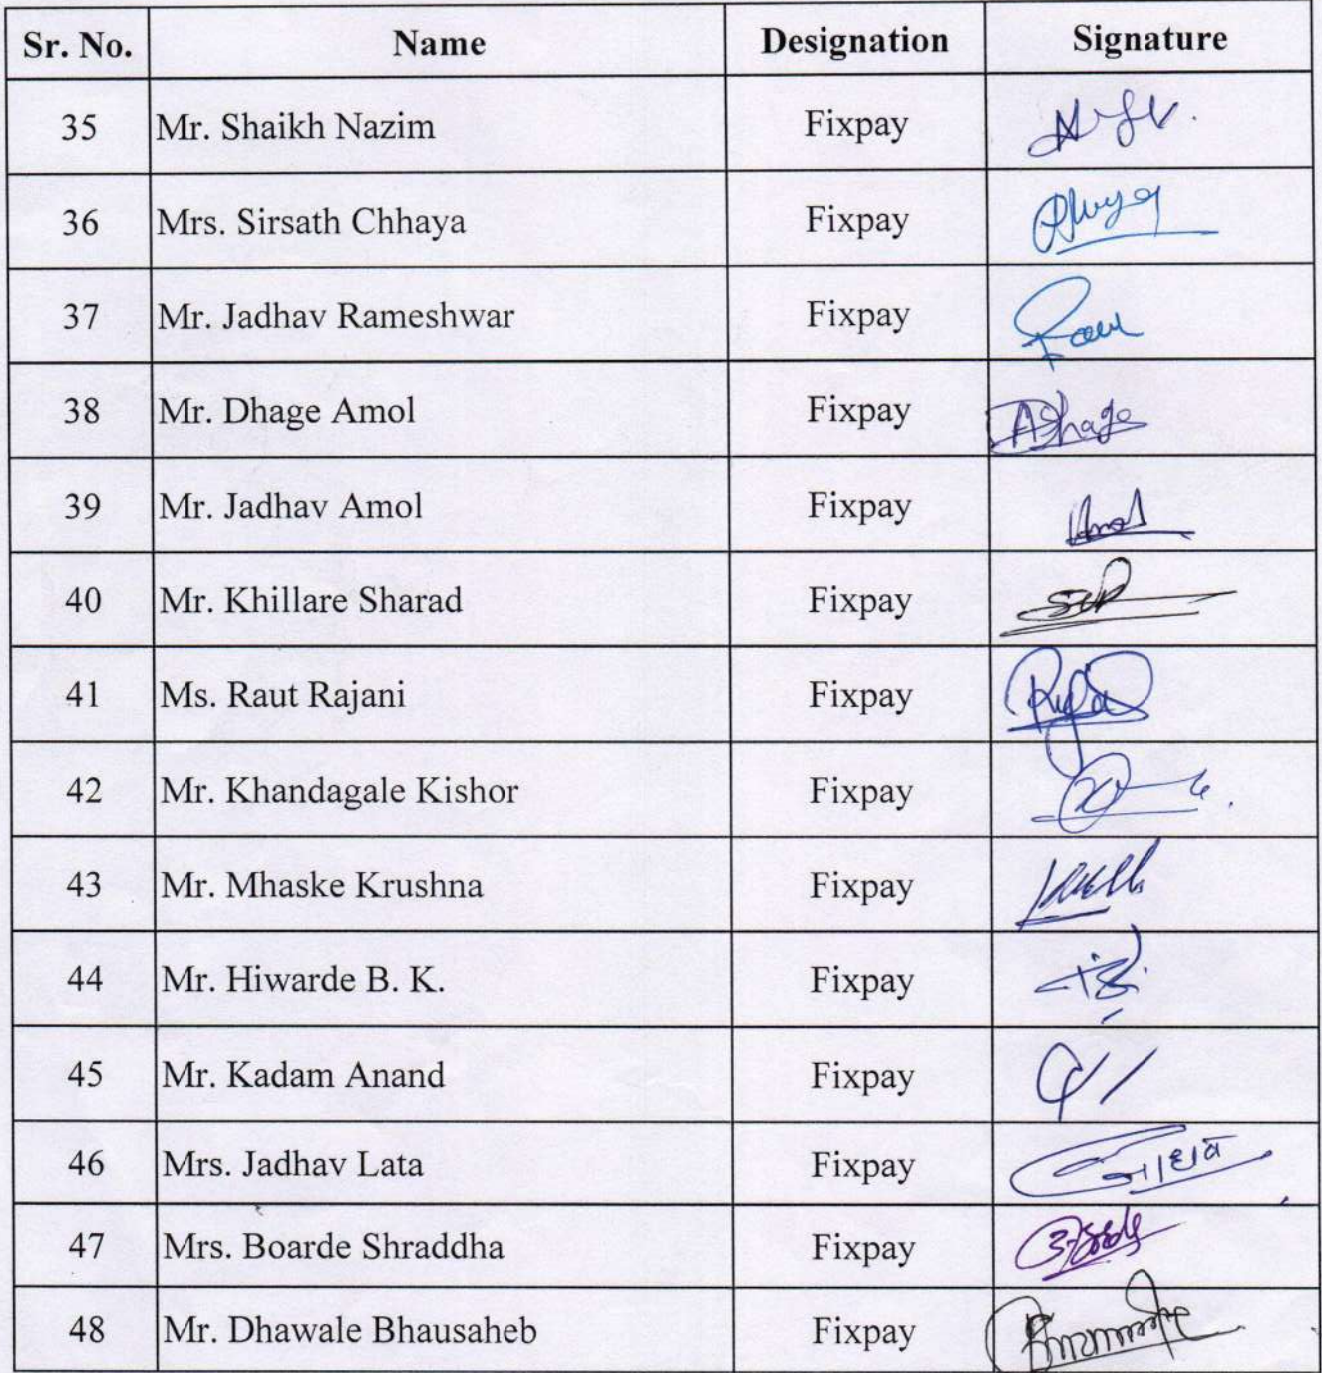 Sr. No. Name Designation Signature
35 Mr. Shaikh Nazim Fixpay
36 Mrs. Sirsath Chhaya Fixpay
37 Mr. Jadhav Rameshwar Fixpay
38 Mr. Dhage Amol Fixpay ADhage
39 Mr. Jadhav Amol Fixpay Amol
40 Mr. Khillare Sharad Fixpay
41 Ms. Raut Rajani Fixpay
42 Mr. Khandagale Kishor Fixpay
43 Mr. Mhaske Krushna Fixpay
44 Mr. Hiwarde B. K. Fixpay
45 Mr. Kadam Anand Fixpay
46 Mrs. Jadhav Lata Fixpay जाधव
47 Mrs. Boarde Shraddha Fixpay
48 Mr. Dhawale Bhausaheb Fixpay